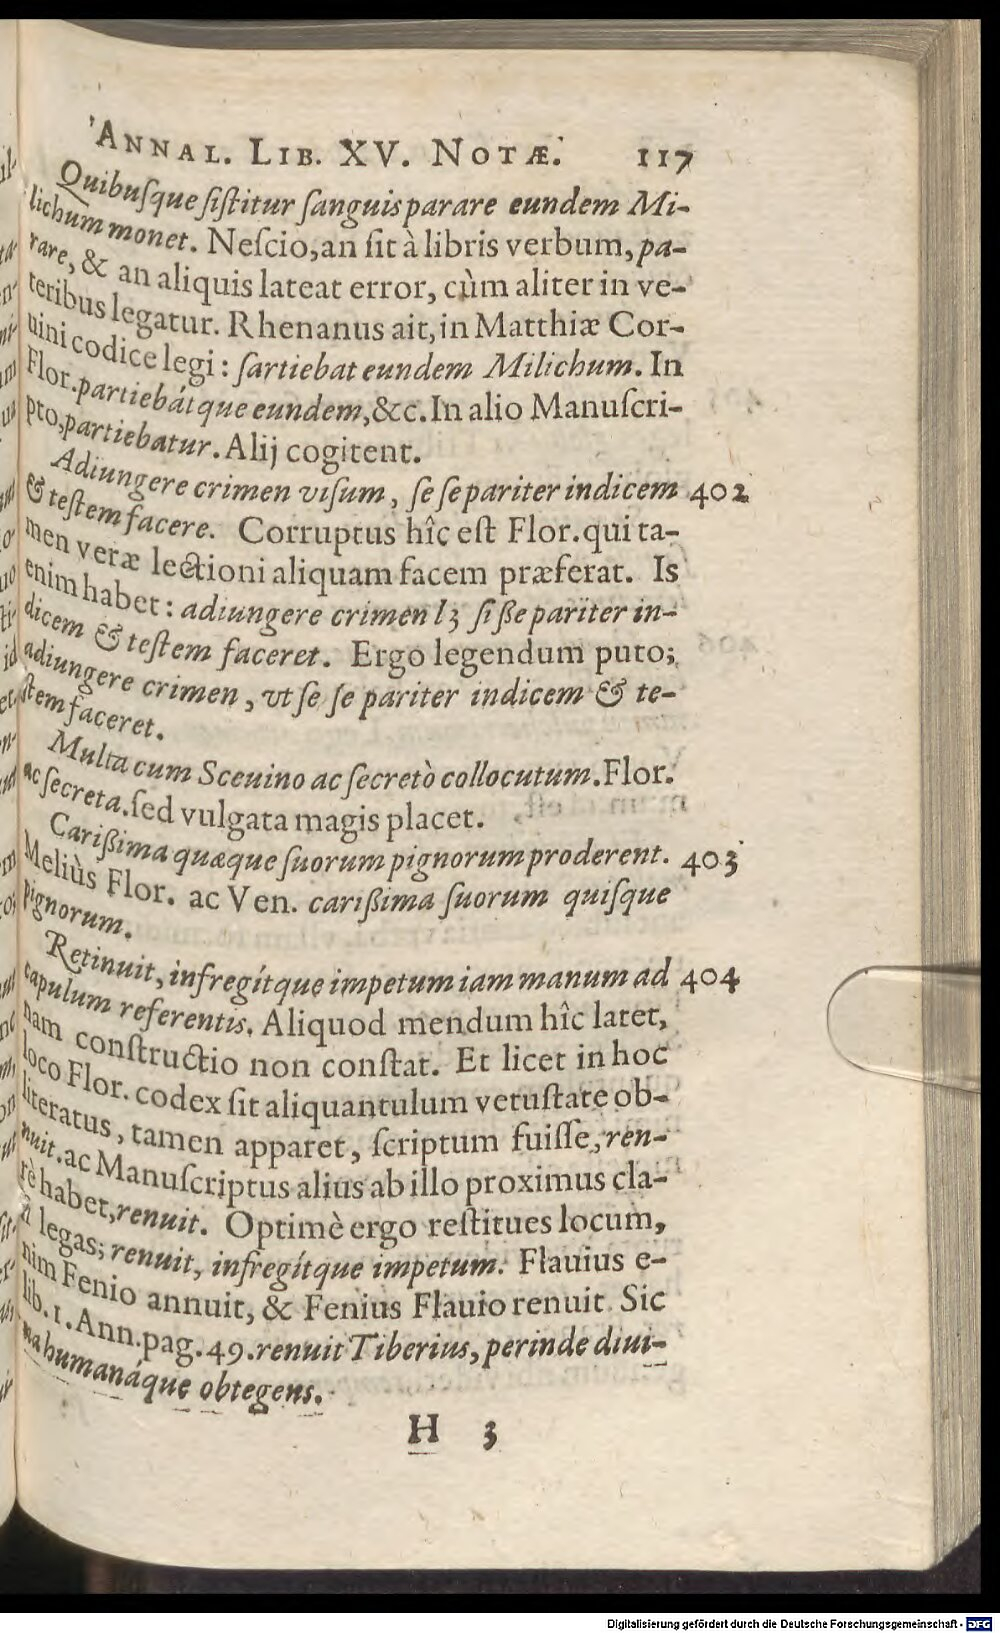 ANNAL. LIB. XV. NOTÆ. 117
Quibuſque ſiſtitur ſanguis parare eundem Mi-
lichum monet. Neſcio, an ſit à libris verbum, pa-
rare, & an aliquis lateat error, cùm aliter in ve-
teribus legatur. Rhenanus ait, in Matthiæ Cor-
uini codice legi: ſartiebat eundem Milichum. In
Flor. partiebátque eundem, &c. In alio Manuſcri-
pto, partiebatur. Alij cogitent.
Adiungere crimen viſum, ſe ſe pariter indicem 402
& teſtem facere. Corruptus hîc eſt Flor. qui ta-
men veræ lectioni aliquam facem præferat. Is
enim habet: adiungere crimen lʒ ſi ße pariter in-
dicem & teſtem faceret. Ergo legendum puto;
adiungere crimen, vt ſe ſe pariter indicem & te-
ſtem faceret.
Multa cum Sceuino ac ſecretò collocutum. Flor.
ac ſecreta. ſed vulgata magis placet.
Carißima quæque ſuorum pignorum proderent. 403
Meliùs Flor. ac Ven. carißima ſuorum quiſque
pignorum.
Retinuit, infregítque impetum iam manum ad 404
capulum referentis. Aliquod mendum hîc latet,
nam conſtructio non conſtat. Et licet in hoc
loco Flor. codex ſit aliquantulum vetuſtate ob-
literatus, tamen apparet, ſcriptum fuiſſe, ren-
nuit. ac Manuſcriptus alius ab illo proximus cla-
rè habet, renuit. Optimè ergo reſtitues locum,
legas; renuit, infregítque impetum. Flauius e-
nim Fenio annuit, & Fenius Flauio renuit. Sic
lib. 1. Ann. pag. 49. renuit Tiberius, perinde diui-
na humanáque obtegens.
H 3
Digitalisierung gefördert durch die Deutsche Forschungsgemeinschaft - DFG